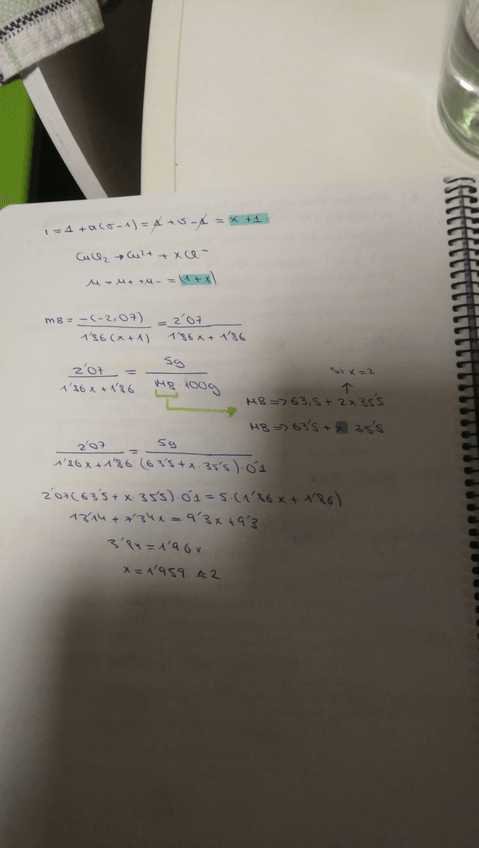 i = 1 + α(υ-1) = 1 + υ - 1 = x + 1
CuCl₂ → Cu²⁺ + x Cl⁻
μ = μ+ + μ- = (1+x)
mB = -(-2,07) / 1'86(x+1) = 2'07 / 1'86x + 1'86
2'07 / 1'86x + 1'86 = 5g / MB · 100g
si x=2
↑
MB => 63,5 + 2x35'5
MB => 63'5 + x 35'5
2'07 / 1'86x + 1'86 = 5g / (63'5 + x·35'5)·0'1
2'07(63'5 + x·35'5)·0'1 = 5(1'86x + 1'86)
13'14 + 7'34x = 9'3x + 9'3
3'84 = 1'96x
x = 1'959 ≈ 2